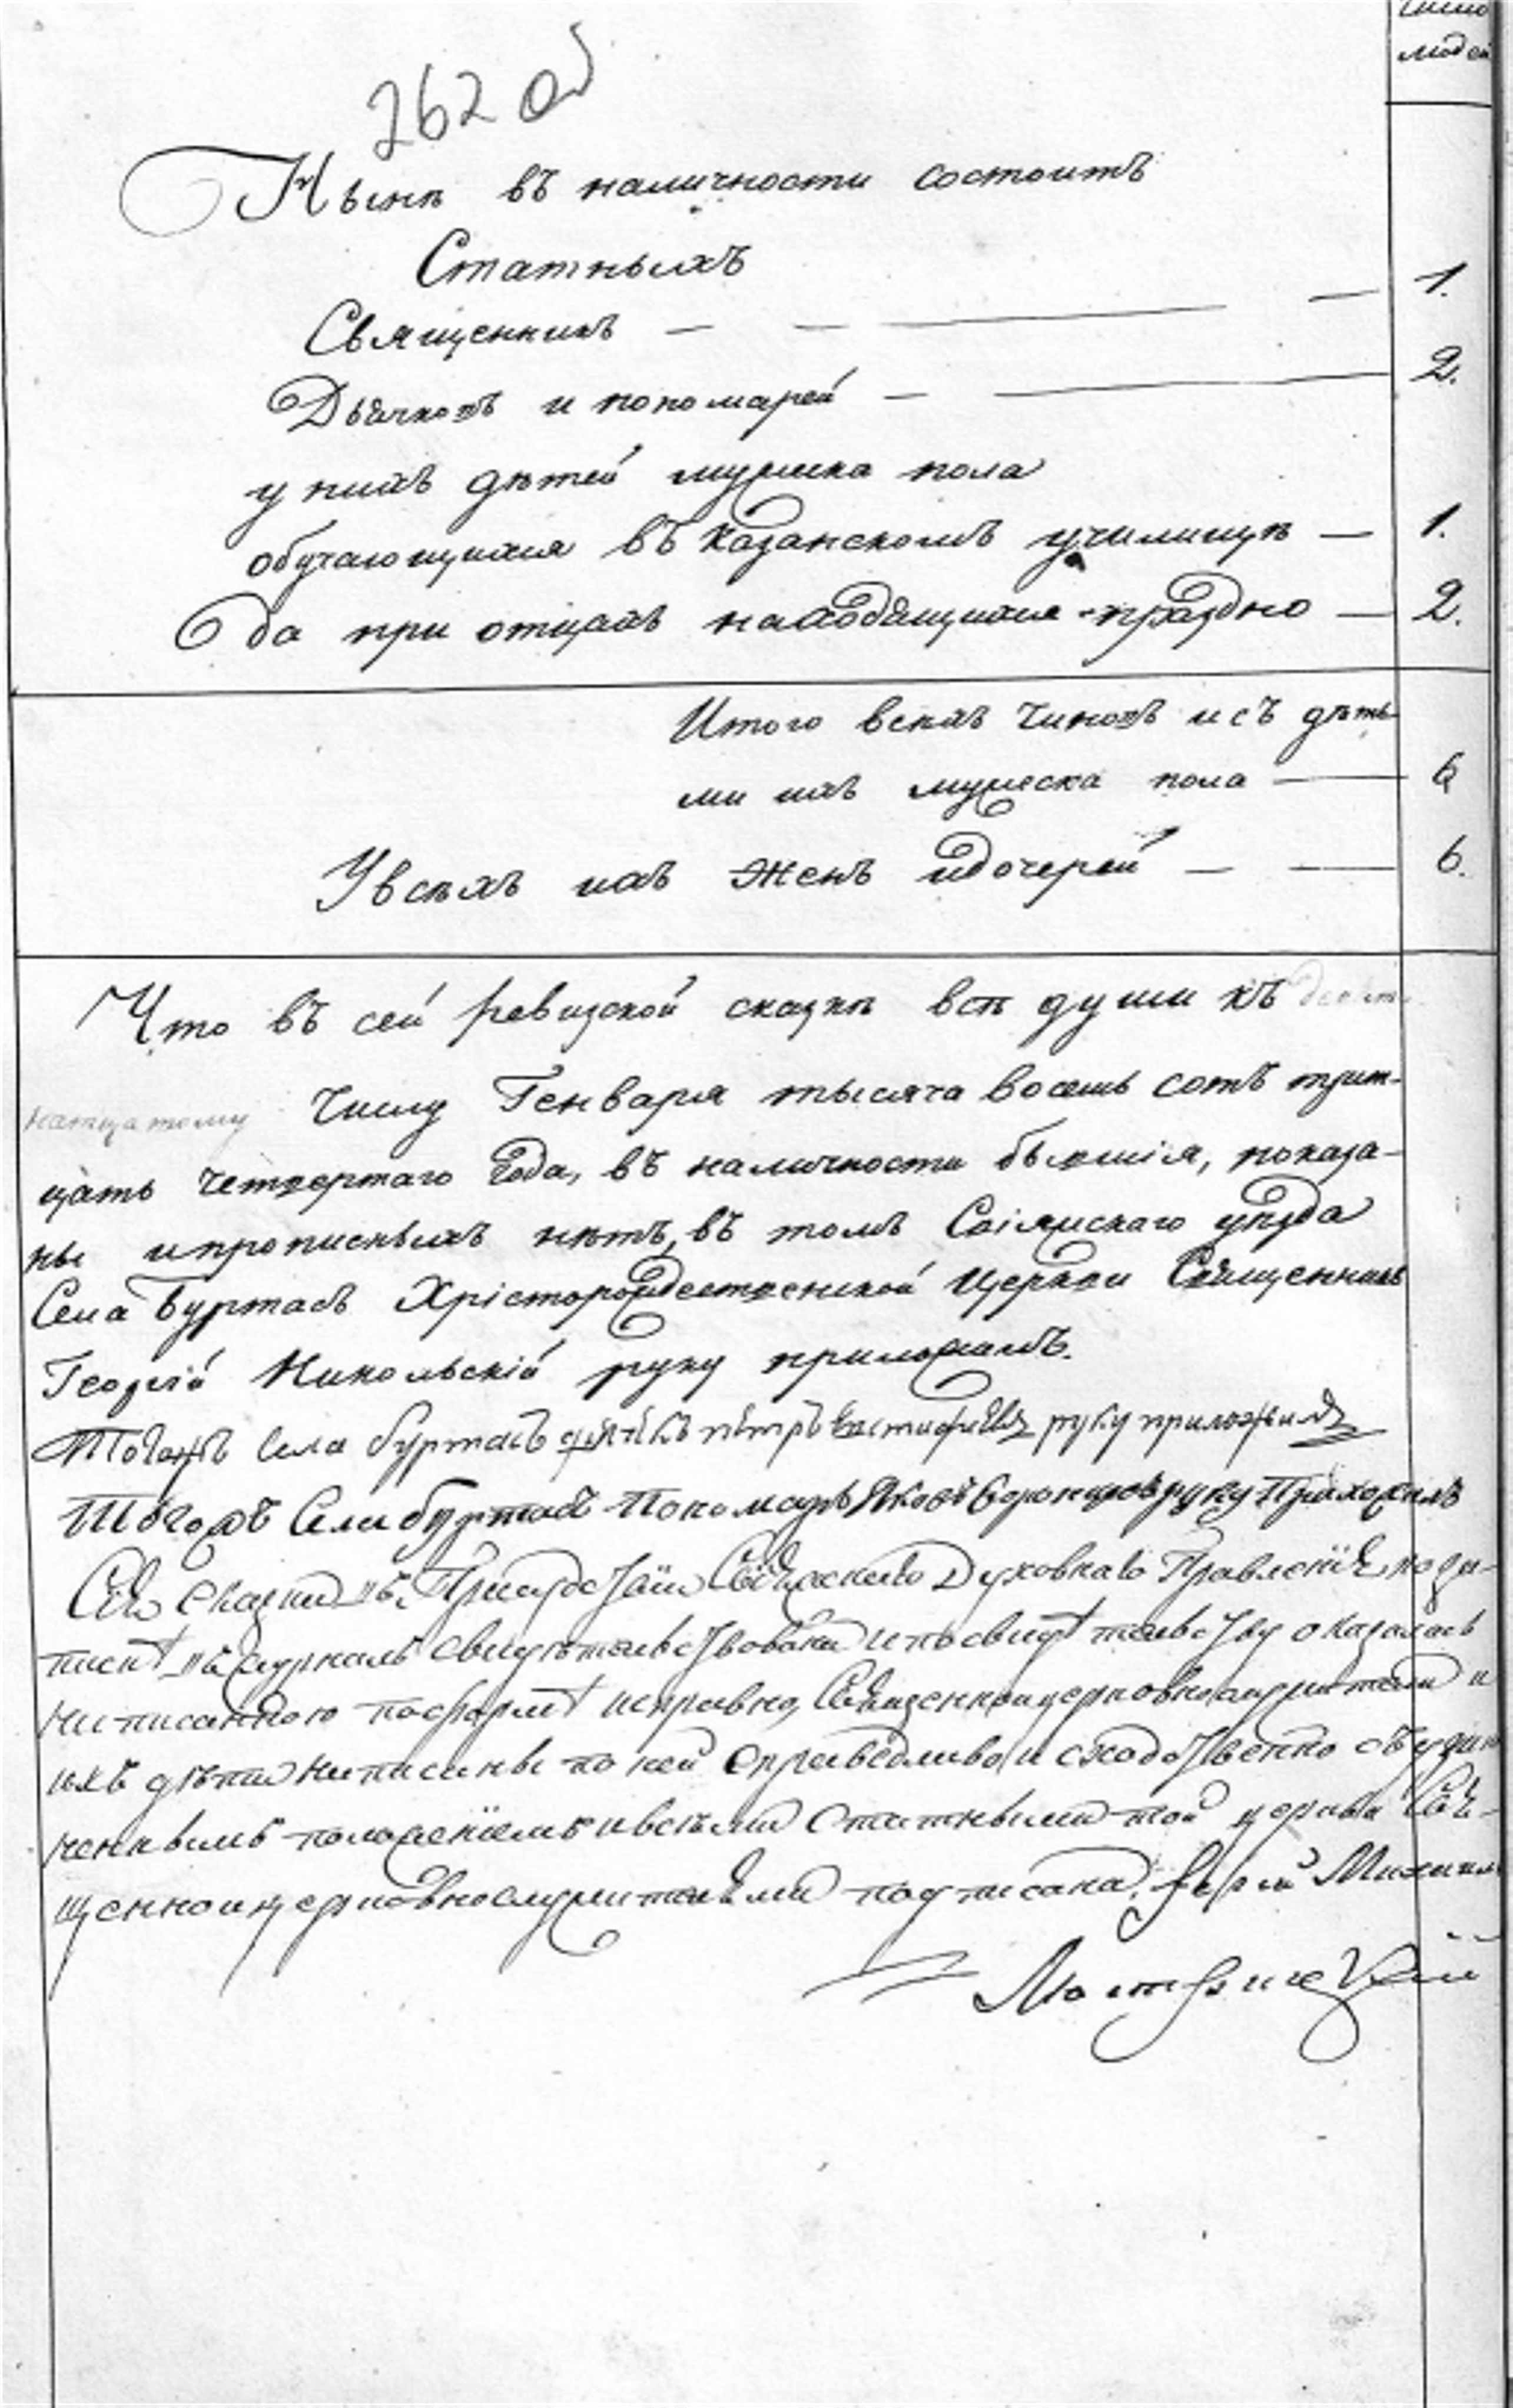 Число
людей
262 об
Нынѣ въ наличности состоитъ
Статныхъ
Священникъ — 1.
Дьячковъ и пономарей — 2.
у нихъ дѣтей мужеска пола
обучающихся въ Казанскомъ училищѣ — 1.
да при отцахъ находящихся праздно — 2.
Итого всѣхъ чиновъ и съ дѣть-
ми ихъ мужеска пола — 6
У всѣхъ ихъ женъ и дочерей — 6.
Что въ сей ревизской сказкѣ всѣ души къ девят-
натцатому числу Генваря тысяча восемь сотъ трит-
цать четвертаго года, въ наличности бывшія, показа-
ны и прописныхъ нѣтъ, въ томъ Свіяжскаго уѣзда
Села Буртасъ Хрісторождественской Церкви Священникъ
Георгій Никольскій руку приложилъ.
Тогожъ Села буртасъ дьячекъ петръ руку приложилъ
Тогожъ Села буртасъ Пономарь Яковъ Воронцовъ руку Приложилъ
Сія Сказка въ Присудствіи Свіяжскаго Духовнаго Правленія по за-
писи въ журналъ свидѣтельствована и по свидѣтельству оказалась
написанною по формѣ исправно, Священноцерковнослужители и
ихъ дѣти написаны по ней справедливо и сходственно съ учи-
неннымъ положеніемъ и всѣми Статными той церкви Свя-
щенноицерковнослужителями подписана. Іерей Михаилъ